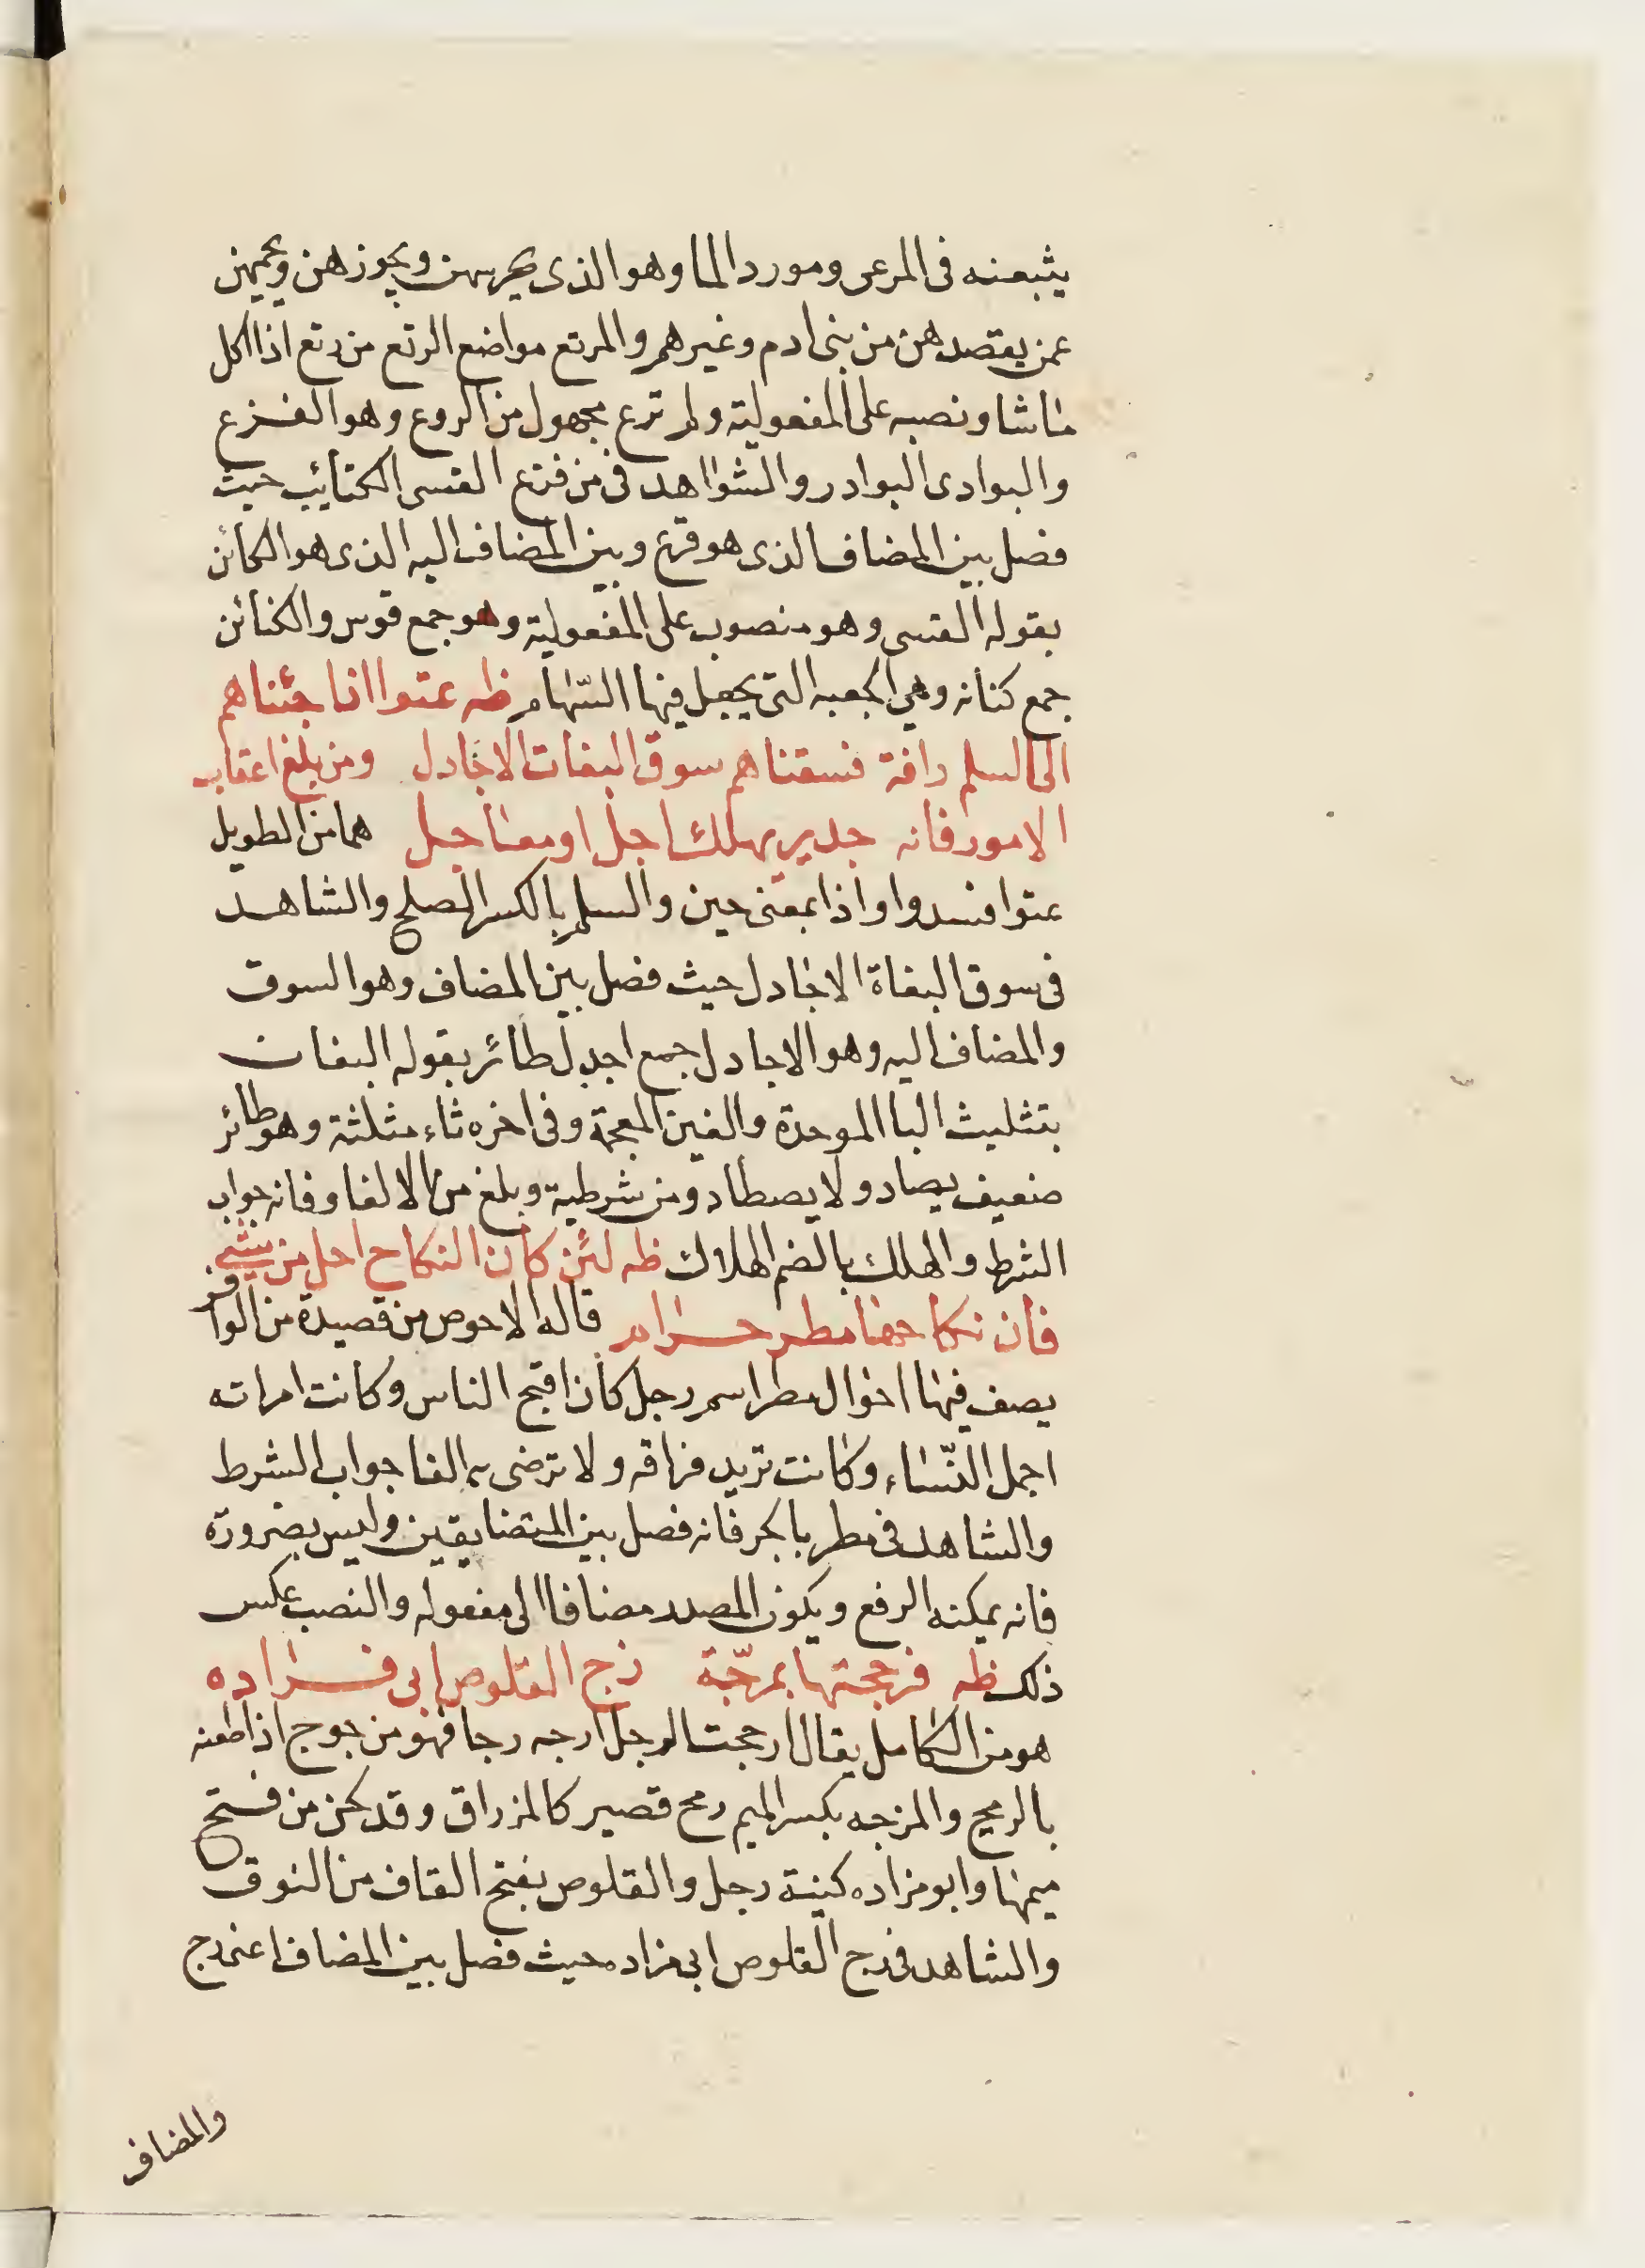 يتبعنه فى المرعى ومورد الما وهو الذى يحرسهن ويجوزهن ويحميهن
عمن يقصدهن من بنى ادم وغيرهم والمرتع مواضع الرتع من رتع اذا اكل
ماشا ونصبه على المفعولية ولم ترع مجهول من الروع وهو الفزع
والبوادى البوادر والشواهد فى من قرع القسى الكتايب حيث
فصل بين المضاف الذى هو قرع وبين المضاف اليه الذى هو الكائن
بقوله القسى وهو منصوب على المفعولية وهو جمع قوس والكنائن
جمع كنانه وهى الجعبه التى يجعل فيها السّهام ظه عتوا اذا جئناهم
الى السلم رافة فسقناهم سوق البغات الاجادل ومن يلغ اعقاب
الامور فانه جدير بهلك اجل او معاجل هما من الطويل
عتوا فسدوا واذا بمعنى حين والسلم بالكسر الصلح والشاهد
فى سوق البغاة الاجادل حيث فصل بين المضاف وهو السوق
والمضاف اليه وهو الاجادل جمع اجدل طائر بقوله البغات
بتثليث البا الموحدة والغين المعجمة وفى اخره ثاء مثلثة وهو طائر
ضعيف يصاد ولا يصطاد ومن شرطية ويلغ من الالغا وفانه جواب
الشرط والهلك بالضم الهلاك ظه لئن كان النكاح احل من شىء
فان نكاحها مطر حرام قاله الاحوص من قصيدة من الوافر
يصف فيها احوال مطر اسم رجل كان اقبح الناس وكانت امراته
اجمل النّساء وكانت تريد فراقه ولا ترضى به الفا جواب الشرط
والشاهد فى مطر بالجر فانه فصل بين المتضايفين وليس بضرورة
فانه يمكنه الرفع ويكون المصدر مضافا الى مفعوله والنصب عكس
ذلك ظه فزججتها بمزجّة زج القلوص ابى مزاده
هو من الكامل يقال ازججت الرجل ازجه زجا فهو مزجوج اذا طعنه
بالرمح والمزجه بكسر الميم رمح قصير كالمزراق وقد لحن من فتح
ميمها وابو مزاده كنية رجل والقلوص بفتح القاف من النوق
والشاهد فى زج القلوص ابى مزاده حيث فصل بين المضاف اعنى زج
والمضاف